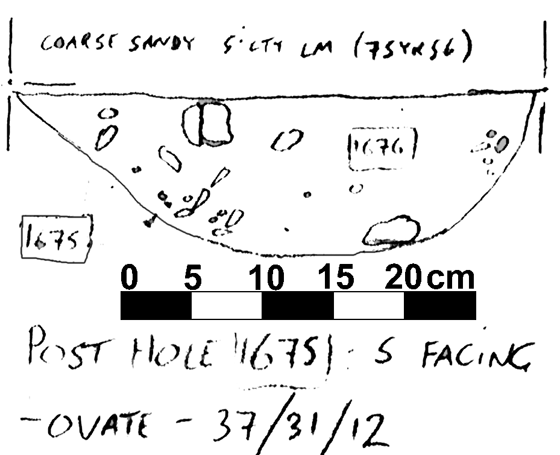 COARSE SANDY SILTY LM (75YR56)
1676
1675
0 5 10 15 20cm
POST HOLE 1675 : S FACING
-OVATE - 37/31/12